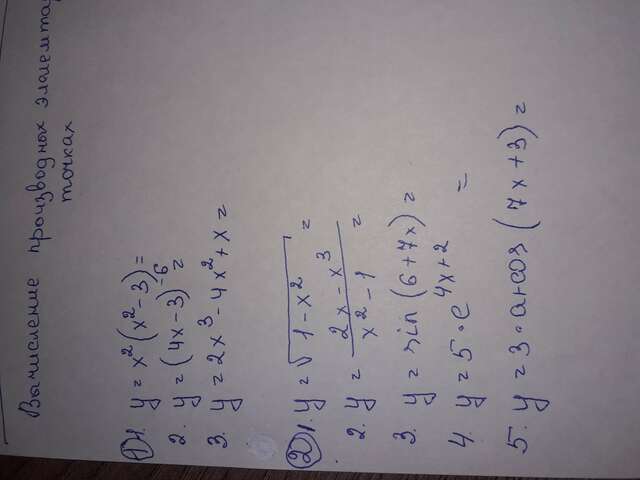 Вычисление производных элемента
точках
① 1. y = x²(x²-3)=
2. y = (4x-3)⁻⁶ =
3. y = 2x³ - 4x² + x =
② 1. y = √(1-x²) =
2. y = (2x - x³)/(x² - 1) =
3. y = sin(6+7x) =
4. y = 5 · e^(4x+2) =
5. y = 3 · arcos(7x+3) =